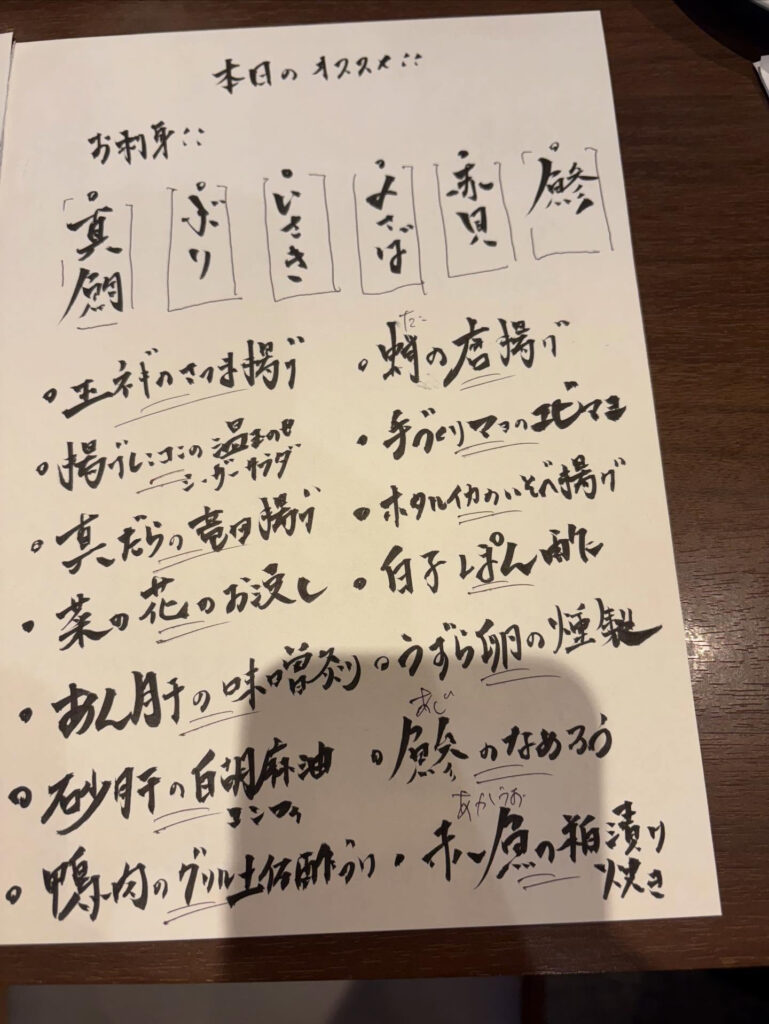 本日のオススメ!!
お刺身!!
鯵
赤貝
〆さば
いさき
ぶり
真鯛
玉ネギのさつま揚げ
蛸の唐揚げ
たこ
揚げレンコンの温玉のせ
シーザーサラダ
手づくりマヨのエビマヨ
真だらの竜田揚げ
ホタルイカのいそべ揚げ
菜の花のお浸し
白子ぽん酢
あん肝の味噌炙り
うずら卵の燻製
砂肝の白胡麻油
コンフィ
あじ
鯵のなめろう
鴨肉のグリル土佐酢づけ
あかうお
赤魚の粕漬け
焼き